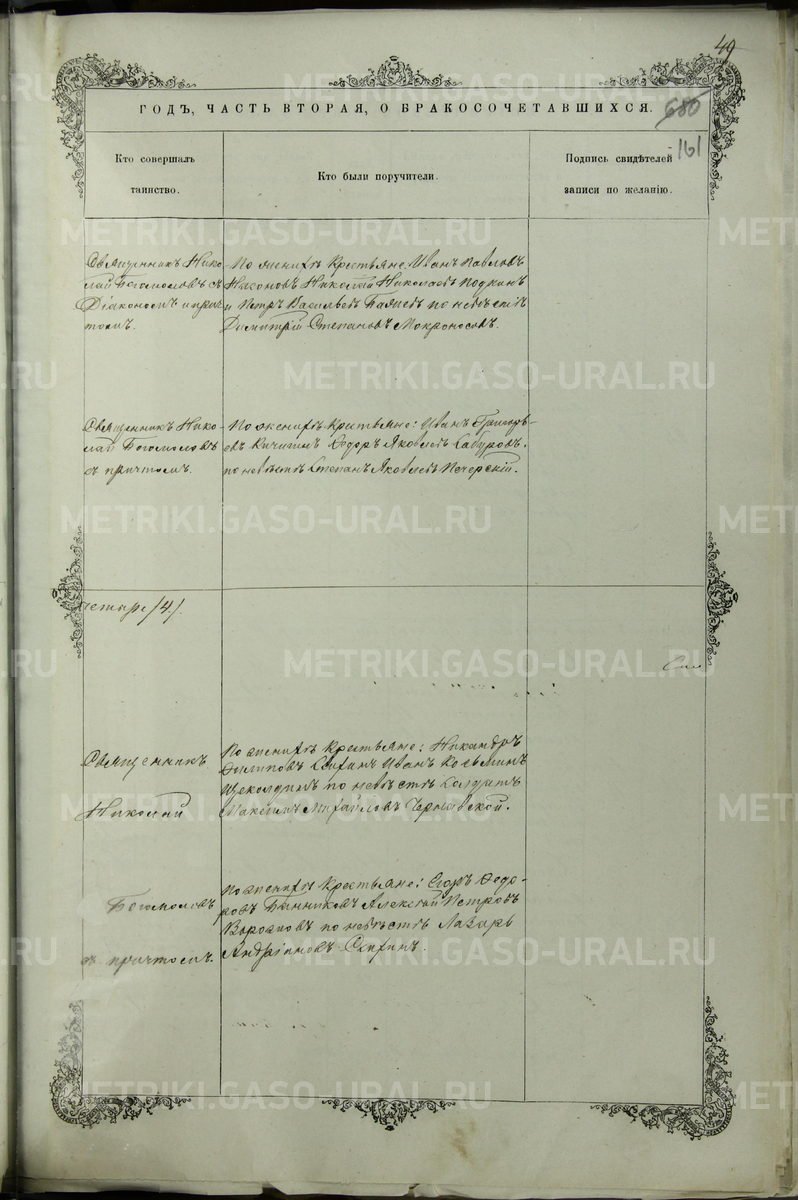 49
ГОДЪ, ЧАСТЬ ВТОРАЯ, О БРАКОСОЧЕТАВШИХСЯ.
680
161
Кто совершалъ
таинство.
Кто были поручители.
Подпись свидѣтелей
записи по желанію.
Священникъ Нико-
лай Богомоловъ съ
Діакономъ и прич-
томъ.
По женихѣ Крестьяне: Иванъ Павловъ
Николай Николаевъ
и Петръ Васильевъ по невѣстѣ
Димитрій Степановъ Мокроносовъ.
Священникъ Нико-
лай Богомоловъ
съ причтомъ.
По женихѣ Крестьяне: Иванъ Григорь-
евъ Кичигинъ Ѳедоръ Яковлевъ Сабуровъ.
по невѣстѣ Степанъ Яковлевъ Печерскій.
четыре /4/.
Священникъ
Николай
Богомоловъ
съ причтомъ.
По женихѣ Крестьяне: Никандръ
Филиповъ Иванъ Козьминъ
Щеколдинъ по невѣстѣ Солдатъ
Максимъ Михайловъ Чернавской.
По женихѣ Крестьяне: Егоръ Ѳедо-
ровъ Банниковъ Алексѣй Петровъ
по невѣстѣ Лазарь
METRIKI.GASO-URAL.RU